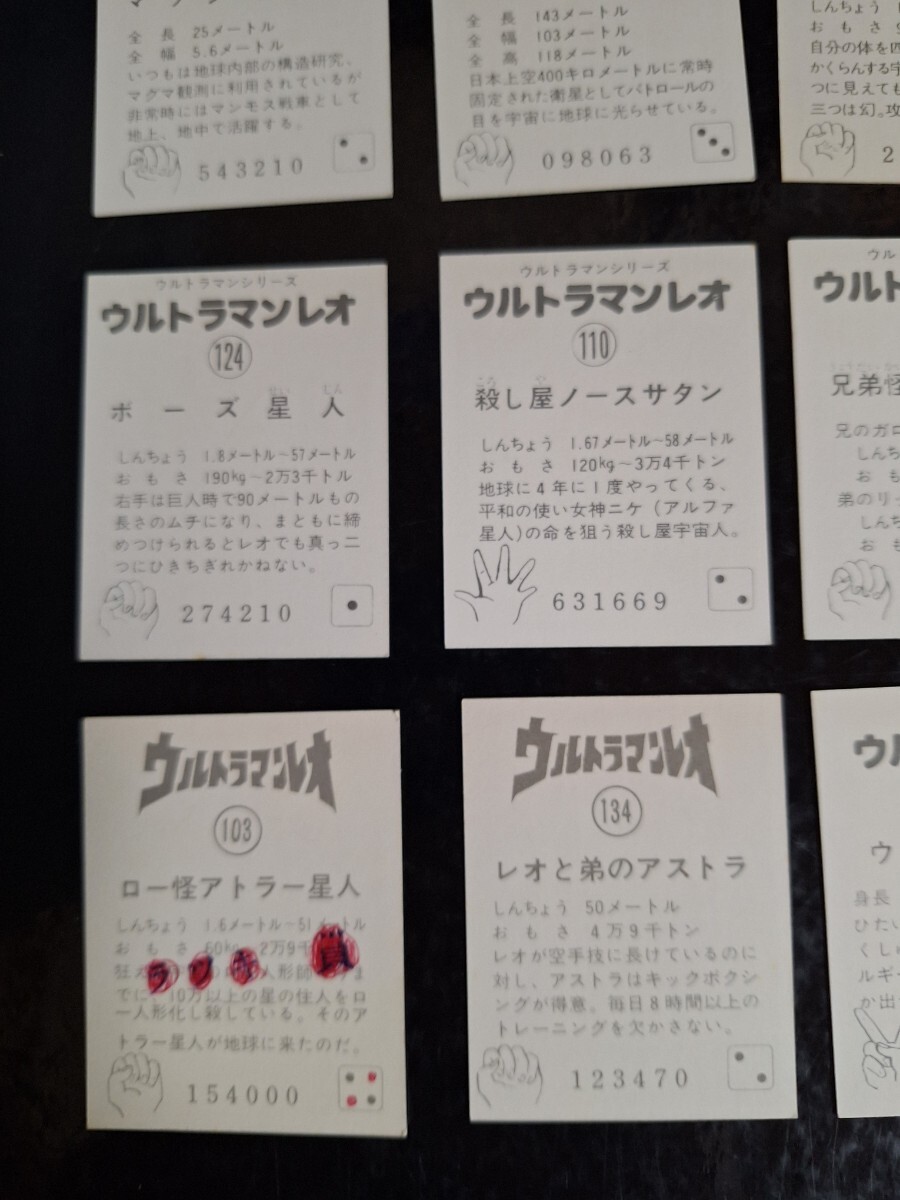 全長 25メートル
全幅 5.6メートル
いつもは地球内部の構造研究、
マグマ観測に利用されているが
非常時にはマンモス戦車として
地上、地中で活躍する。
543210
全長 143メートル
全幅 103メートル
全高 118メートル
日本上空400キロメートルに常時
固定された衛星としてパトロールの
目を宇宙に地球に光らせている。
098063
しんちょう
おもさ
自分の体を四
かくらんする宇
つに見えても
三つは幻。攻
2
ウルトラマンシリーズ
ウルトラマンレオ
124
ボーズ星人
せい じん
しんちょう 1.8メートル~57メートル
おもさ 190kg~2万3千トル
右手は巨人時で90メートルもの
長さのムチになり、まともに締
めつけられるとレオでも真っ二
つにひきちぎれかねない。
274210
ウルトラマンシリーズ
ウルトラマンレオ
110
ころ や
殺し屋ノースサタン
しんちょう 1.67メートル~58メートル
おもさ 120kg~3万4千トン
地球に4年に1度やってくる、
平和の使い女神ニケ(アルファ
星人)の命を狙う殺し屋宇宙人。
631669
ウル
ウルト
兄弟怪
兄のガロ
しんち
おも
弟のリッ
しんち
おも
ウルトラマンレオ
103
ロー怪アトラー星人
しんちょう 1.6メートル~51メートル
おもさ 60kg 2万9千
でに 10万以上の星の住人をロ
ー人形化し殺している。そのア
トラー星人が地球に来たのだ。
154000
ウルトラマンレオ
134
レオと弟のアストラ
しんちょう 50メートル
おもさ 4万9千トン
レオが空手技に長けているのに
対し、アストラはキックボクシ
ングが得意。毎日8時間以上の
トレーニングを欠かさない。
123470
ウル
ウ
身長
ひたい
くしゅ
ルギー
か出